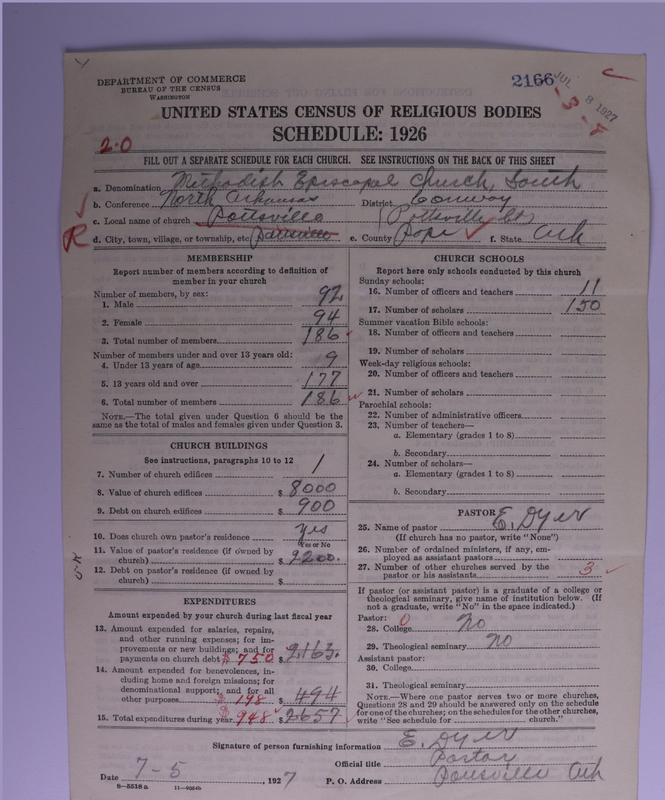 DEPARTMENT OF COMMERCE
BUREAU OF THE CENSUS
WASHINGTON
2166
JUL 8 1927
UNITED STATES CENSUS OF RELIGIOUS BODIES
SCHEDULE: 1926
2-0
FILL OUT A SEPARATE SCHEDULE FOR EACH CHURCH. SEE INSTRUCTIONS ON THE BACK OF THIS SHEET
a. Denomination Methodish Episcopal Church, South
b. Conference North Arkansas District Conway
c. Local name of church Pottsville (Pottsville Ct)
R d. City, town, village, or township, etc. e. County Pope f. State Ark
MEMBERSHIP
Report number of members according to definition of
member in your church
Number of members, by sex:
1. Male 92
2. Female 94
3. Total number of members 186
Number of members under and over 13 years old:
4. Under 13 years of age 9
5. 13 years old and over 177
6. Total number of members 186
NOTE.—The total given under Question 6 should be
same as the total of males and females given under Question 3.
CHURCH BUILDINGS
See instructions, paragraphs 10 to 12
7. Number of church edifices 1
8. Value of church edifices $ 8000
9. Debt on church edifices $ 900
10. Does church own pastor's residence yes
Yes or No
11. Value of pastor's residence (if owned by
church) $ 2200.
12. Debt on pastor's residence (if owned by
church) $
EXPENDITURES
Amount expended by your church during last fiscal year
13. Amount expended for salaries, repairs,
and other running expenses; for im-
provements or new buildings; and for
payments on church debt $ 750 $ 2163.
14. Amount expended for benevolences, in-
cluding home and foreign missions; for
denominational support; and for all
other purposes $ 198 $ 494
15. Total expenditures during year $ 948 $ 2657
CHURCH SCHOOLS
Report here only schools conducted by this church
Sunday schools:
16. Number of officers and teachers 11
17. Number of scholars 150
Summer vacation Bible schools:
18. Number of officers and teachers
19. Number of scholars
Week-day religious schools:
20. Number of officers and teachers
21. Number of scholars
Parochial schools:
22. Number of administrative officers
23. Number of teachers—
a. Elementary (grades 1 to 8)
b. Secondary
24. Number of scholars—
a. Elementary (grades 1 to 8)
b. Secondary
PASTOR
25. Name of pastor E. Dyer
(If church has no pastor, write "None")
26. Number of ordained ministers, if any, em-
ployed as assistant pastors
27. Number of other churches served by the
pastor or his assistants 3
If pastor (or assistant pastor) is a graduate of a college or
theological seminary, give name of institution below. (If
not a graduate, write "No" in the space indicated.)
Pastor: 0
28. College No
29. Theological seminary No
Assistant pastor:
30. College
31. Theological seminary
NOTE.—Where one pastor serves two or more churches,
Questions 28 and 29 should be answered only on the schedule
for one of the churches; on the schedules for the other churches,
write "See schedule for church."
Signature of person furnishing information E. Dyer
Official title Pastor
Date 7-5, 1927 P. O. Address Pottsville Ark
8-5518a 11-9054b